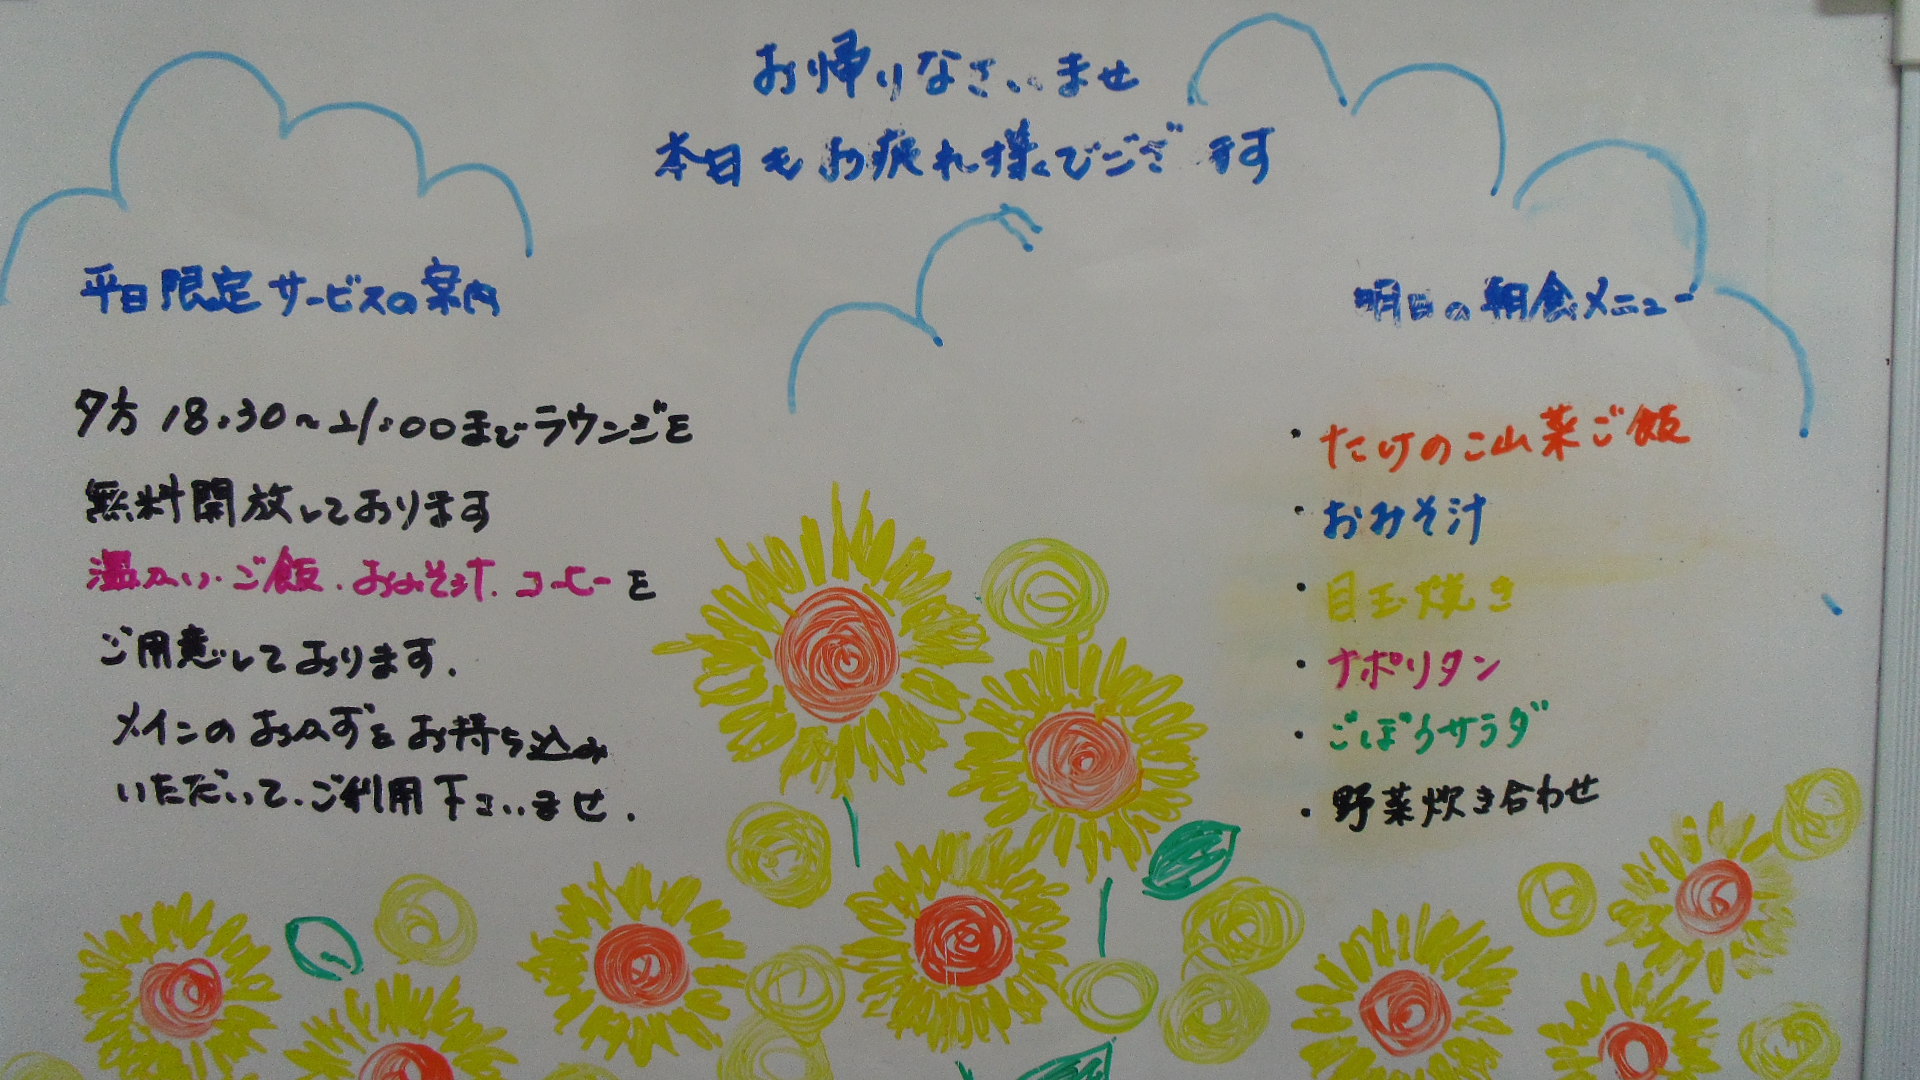 お帰りなさいませ
本日もお疲れ様でございます
平日限定サービスの案内
夕方18:30~21:00までラウンジを
無料開放しております
温かい・ご飯・おみそ汁・コーヒーを
ご用意しております.
メインのおかずをお持ち込み
いただいて、ご利用下さいませ.
明日の朝食メニュー
・たけのこ山菜ご飯
・おみそ汁
・目玉焼き
・ナポリタン
・ごぼうサラダ
・野菜炊き合わせ